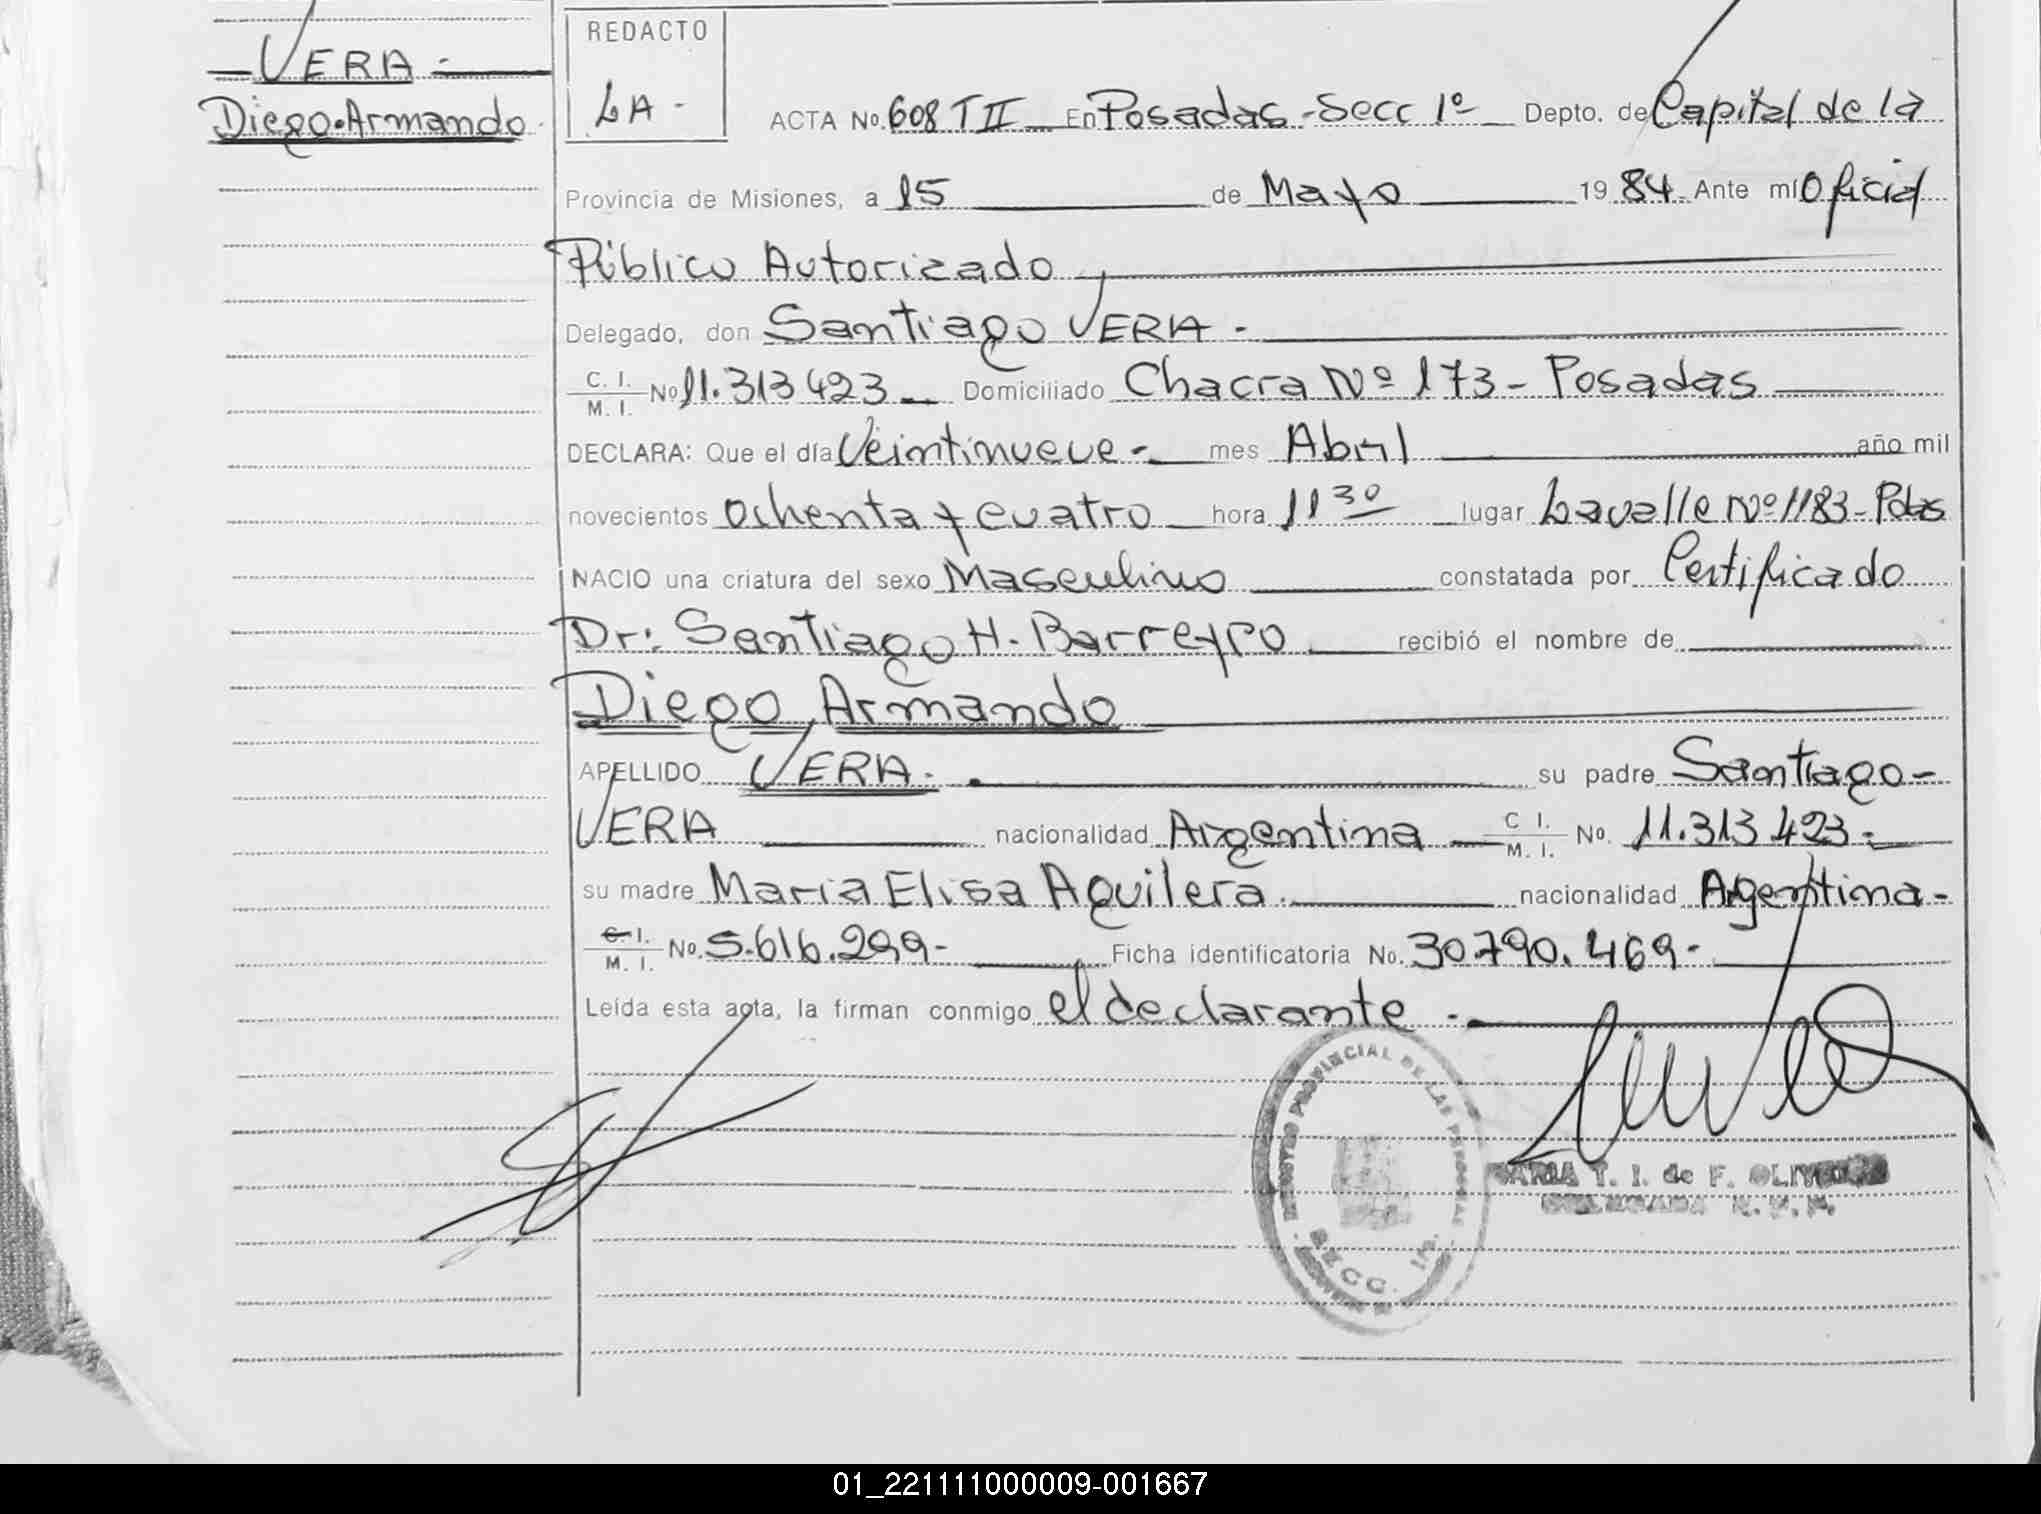 VERA -
Diego Armando
REDACTO
LA -
ACTA No. 608 T II En Posadas - Secc 1º Depto. de Capital de la
Provincia de Misiones, a 15 de Mayo 1984. Ante mí Oficial
Público Autorizado
Delegado, don Santiago VERA -
C. I. / M. I. No 11.313 423 Domiciliado Chacra Nº 173 - Posadas
DECLARA: Que el día Veintinueve - mes Abril año mil
novecientos Ochenta y cuatro hora 11 30 lugar Lavalle Nº 1183 - Pdas
NACIO una criatura del sexo Masculino constatada por Certificado
Dr: Santiago H. Barreyro recibió el nombre de
Diego Armando
APELLIDO VERA - su padre Santiago -
VERA nacionalidad Argentina C I. / M. I. No. 11.313 423 -
su madre Maria Elisa Aguilera nacionalidad Argentina -
C. I. / M. I. No. 5.616.299 - Ficha identificatoria No. 30.790.469 -
Leída esta acta, la firman conmigo el declarante -
REGISTRO PROVINCIAL DE LAS PERSONAS
SECC. 1ª
MARIA T. I. de F. OLIVEIRA
DELEGADA R. P. P.
01_221111000009-001667